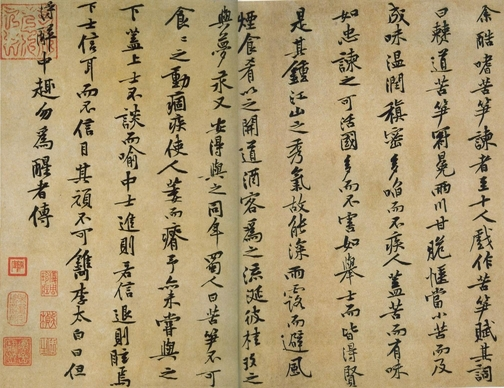 余酷嗜苦笋諫者至十人戲作苦笋賦其詞
曰僰道苦笋冠冕兩川甘脆愜當小苦而及
成味溫潤稹密多啗而不疾人蓋苦而有味
如忠諫之可活國多而不害如舉士而皆得賢
是其鍾江山之秀氣故能深雨露而避風
煙食肴以之開道酒客為之流涎彼桂玫之
與夢永又安得與之同年蜀人曰苦笋不可
食〻之動痼疾使人萎而瘠予亦未嘗與之
下蓋上士不談而喻中士進則若信退則眩焉
下士信耳而不信目其頑不可鐫李太白曰但
得醉中趣勿為醒者傳